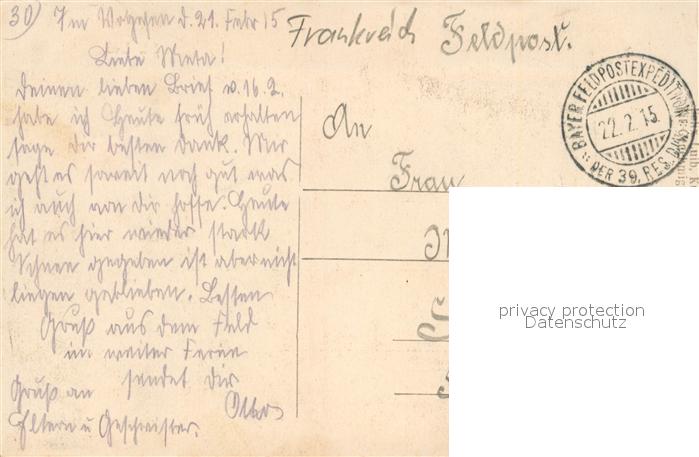 30) Im Vogesen d. 21. Febr 15
Frankreich Feldpost.
Liebe Meta!
Deinen lieben Brief v. 16.2.
habe ich Heute früh erhalten
sage dir besten Dank. Mir
geht es soweit noch gut was
ich auch von dir hoffe. Heute
hat es hier wieder stark
Schnee gegeben ist aber nicht
liegen geblieben. Besten
Gruß aus dem Feld
in weiter Ferne
sendet dir
Otto
Gruß an
Eltern u Geschwister.
An
Frau
BAYER. FELDPOSTEXPEDITION
22.2.15.
DER 39. RES. DIV.
privacy protection
Datenschutz